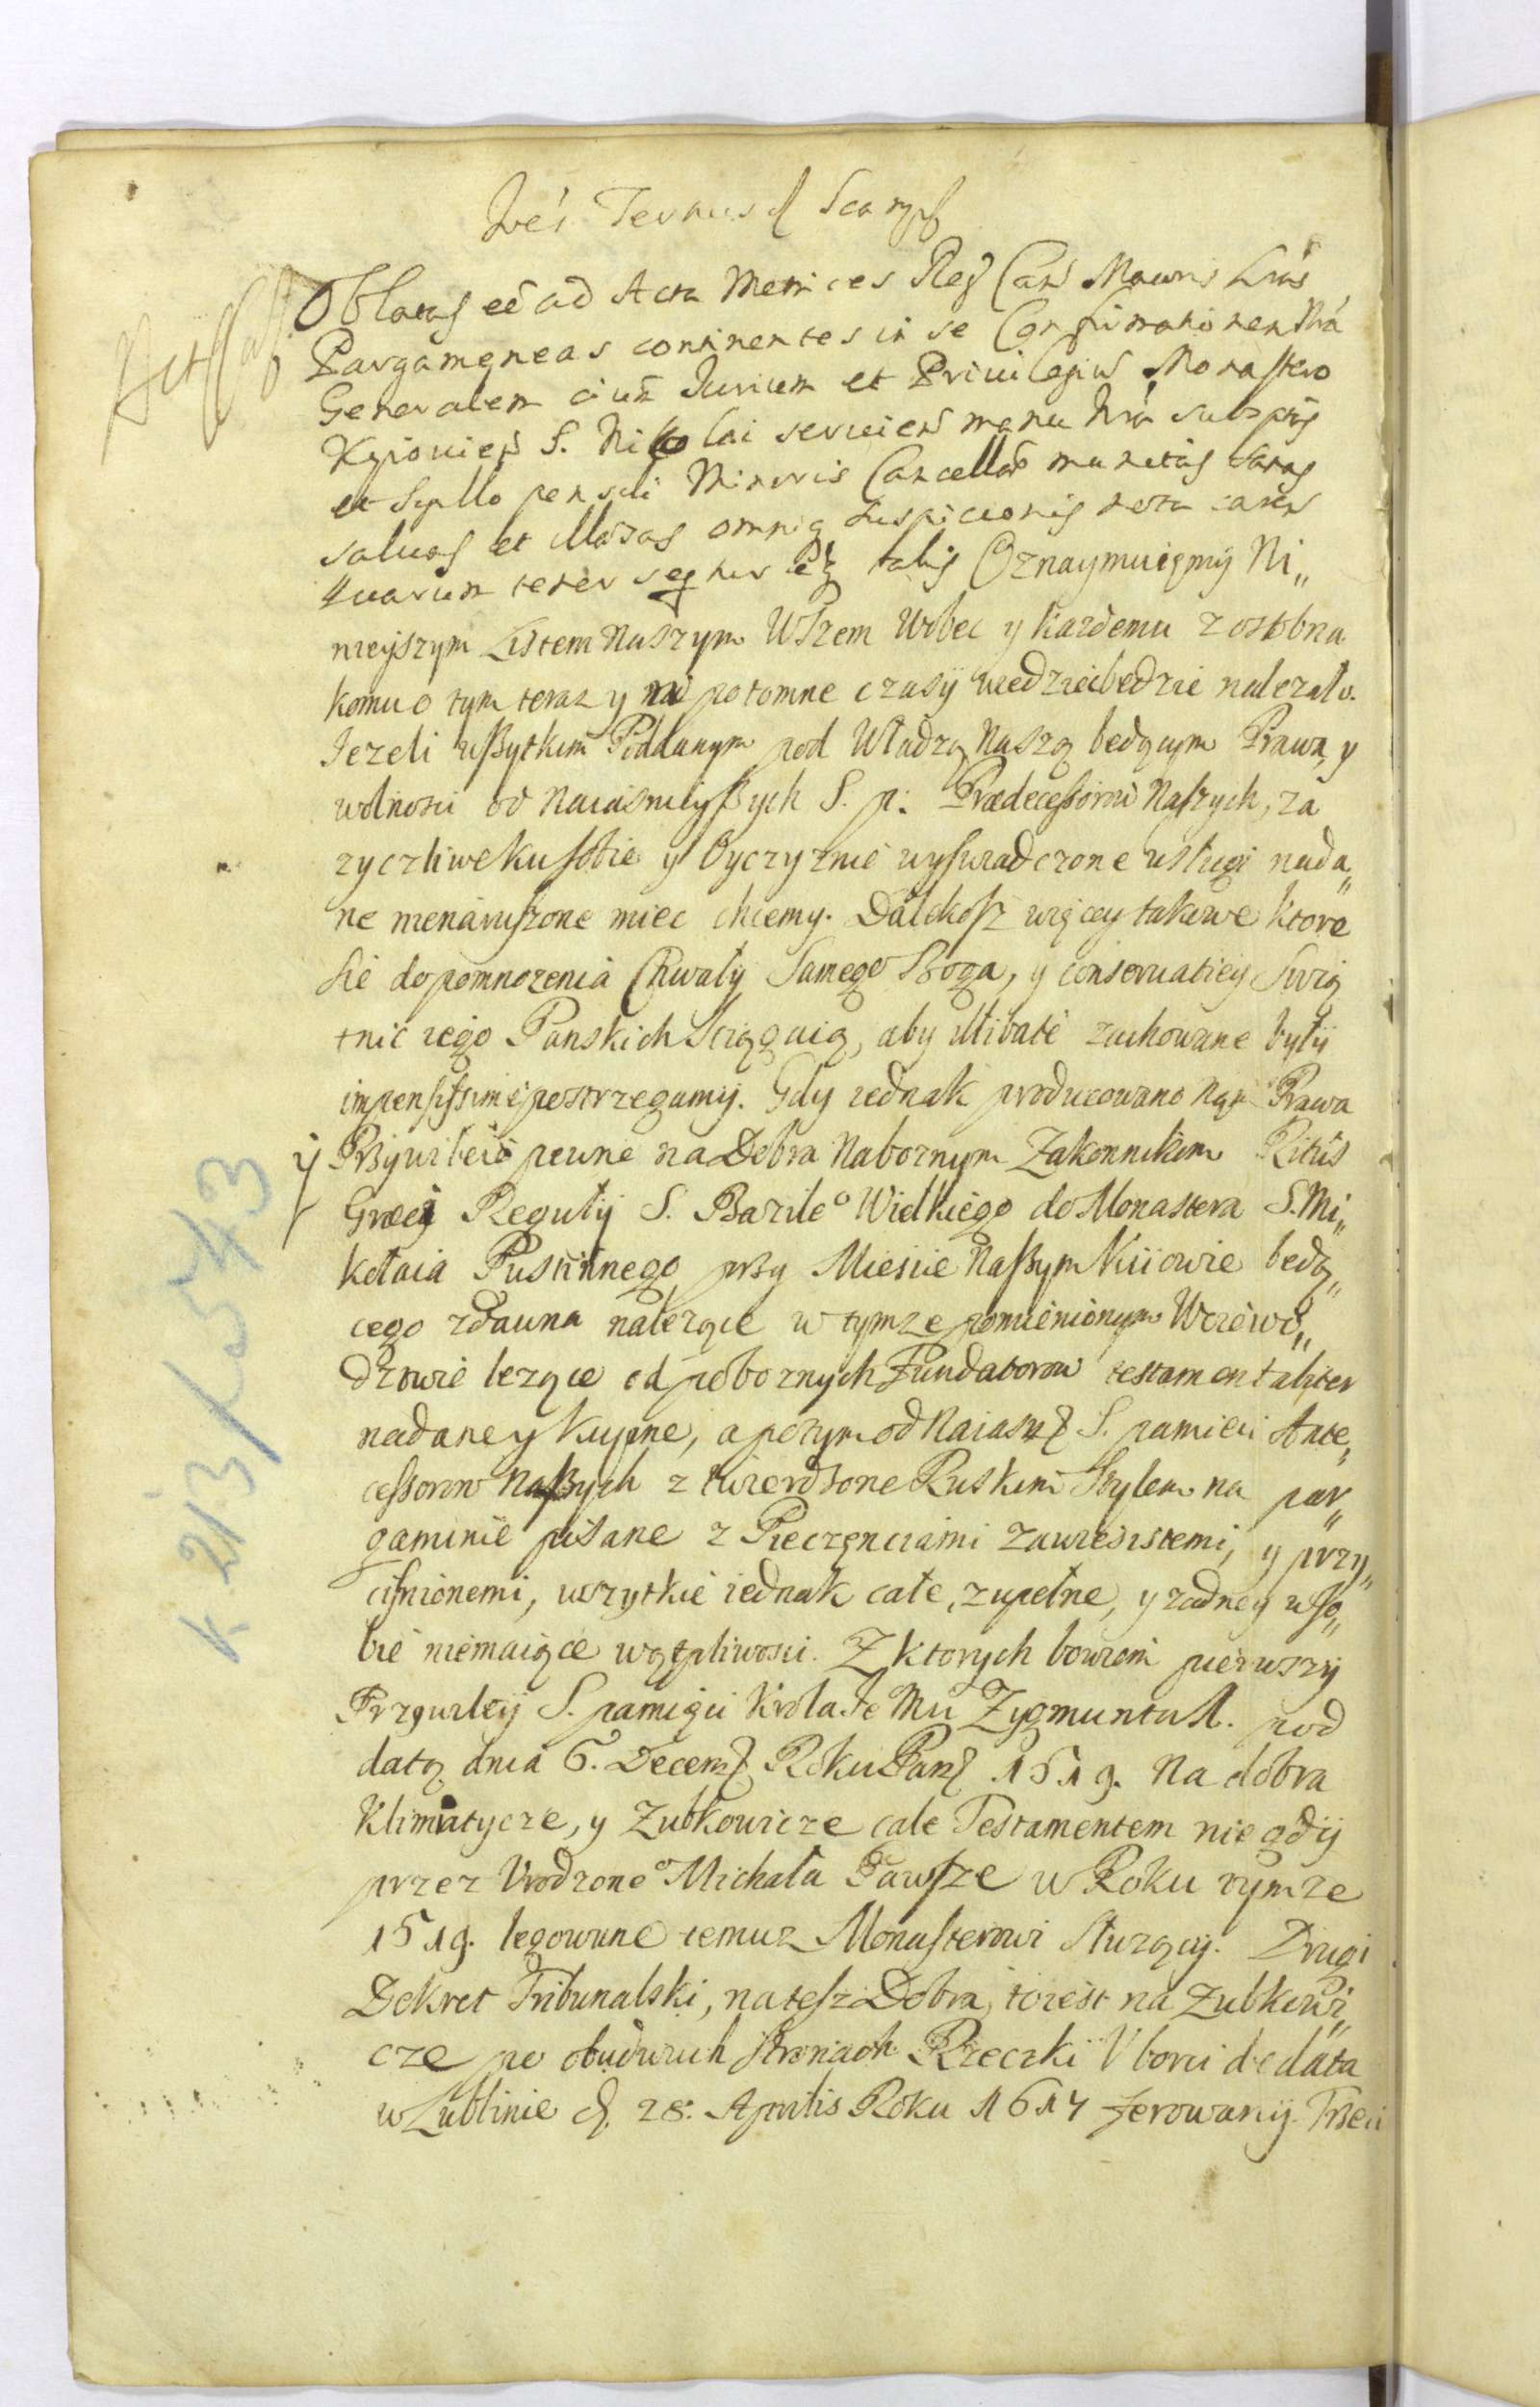 Oblatas eē ad Acta Metrices Reg Can Maioris Lras
Pargameneas continentes in se Confirmationem Nrā
Generalem oium Iurium et Privilegiis Monastero
Kyioviens S. Nikolai servien manu Nrā subscptis
et Sigillo pensili Minoris Cancellar munitas Sanas
salvas et illaesas omniq suspicionis nota caren
quarum tenor seqtur eq talis Oznaymuięmÿ Ni„
nieyszym Listem Naszym Wszem Wobec y każdemu z osobna
komu o tym teraz y na potomne czasÿ wiedziec będzie nalezało.
Jezeli wßytkim Poddanym pod Władzą Naszą będącym Prawa, y
wolnosci od Naiasnieyßych S. p. Prædecessorow Naszych, za
zyczliwe ku sobie y Oyczyznie wyswiadczone usługi nada„
ne nienaruszone miec chcemy. Dalekosz więcey takowe ktore
sie do pomnozenia Chwały Samego Boga, y conservatiey Swią
tnic iego Panskich sciągaią, aby illibate zachowane byłÿ
impensissime postrzegamÿ. Gdy iednak producowano Nąm Prawa
ÿ Przywileie pewne na Dobra Naboznym Zakonnikom Ritûs
Græci Regułÿ S. Bazileᵒ Wielkiego do Monastera S. Mi„
kołaia Pustinnego przy Miescie Naßym Kiiowie będą„
cego zdawna nalezące w tymze pomienionym Woiewo„
dztwie lezące od poboznych Fundatorow testamentaliter
nadane y kupne, a potym od Naiasn S. pamieci Ante„
cessorow Naßych ztwierdzone Ruskim Stylem na par„
gaminie pisane z Pieczęnciami zawiesistemi, y przy„
cisnionemi, wszytkie iednak całe, zupełne, y zadney w so„
bie niemaiące wątpliwosci. Z ktorych bowiem pierwszÿ
Przywiley S. pamięci Krola Je Mci Zygmunta A. pod
datą dnia 6. Decem Roku Pan 1519. Na dobra
Klimiatycze, y Zubkowicze cale Testamentem niegdÿ
przez Vrodzoneᵒ Michała Pawsze w Roku tymze
1519. legowane temuz Monasterowi słuzącÿ. Drugi
Dekret Tribunalski, na tesz Dobra, toiest na Zubkowi„
cze po obudwuch stronach Rzeczki Vborci de data
w Lublinie d. 28. Aprilis Roku 1617 ferowanÿ. Trzeci
K 213/543